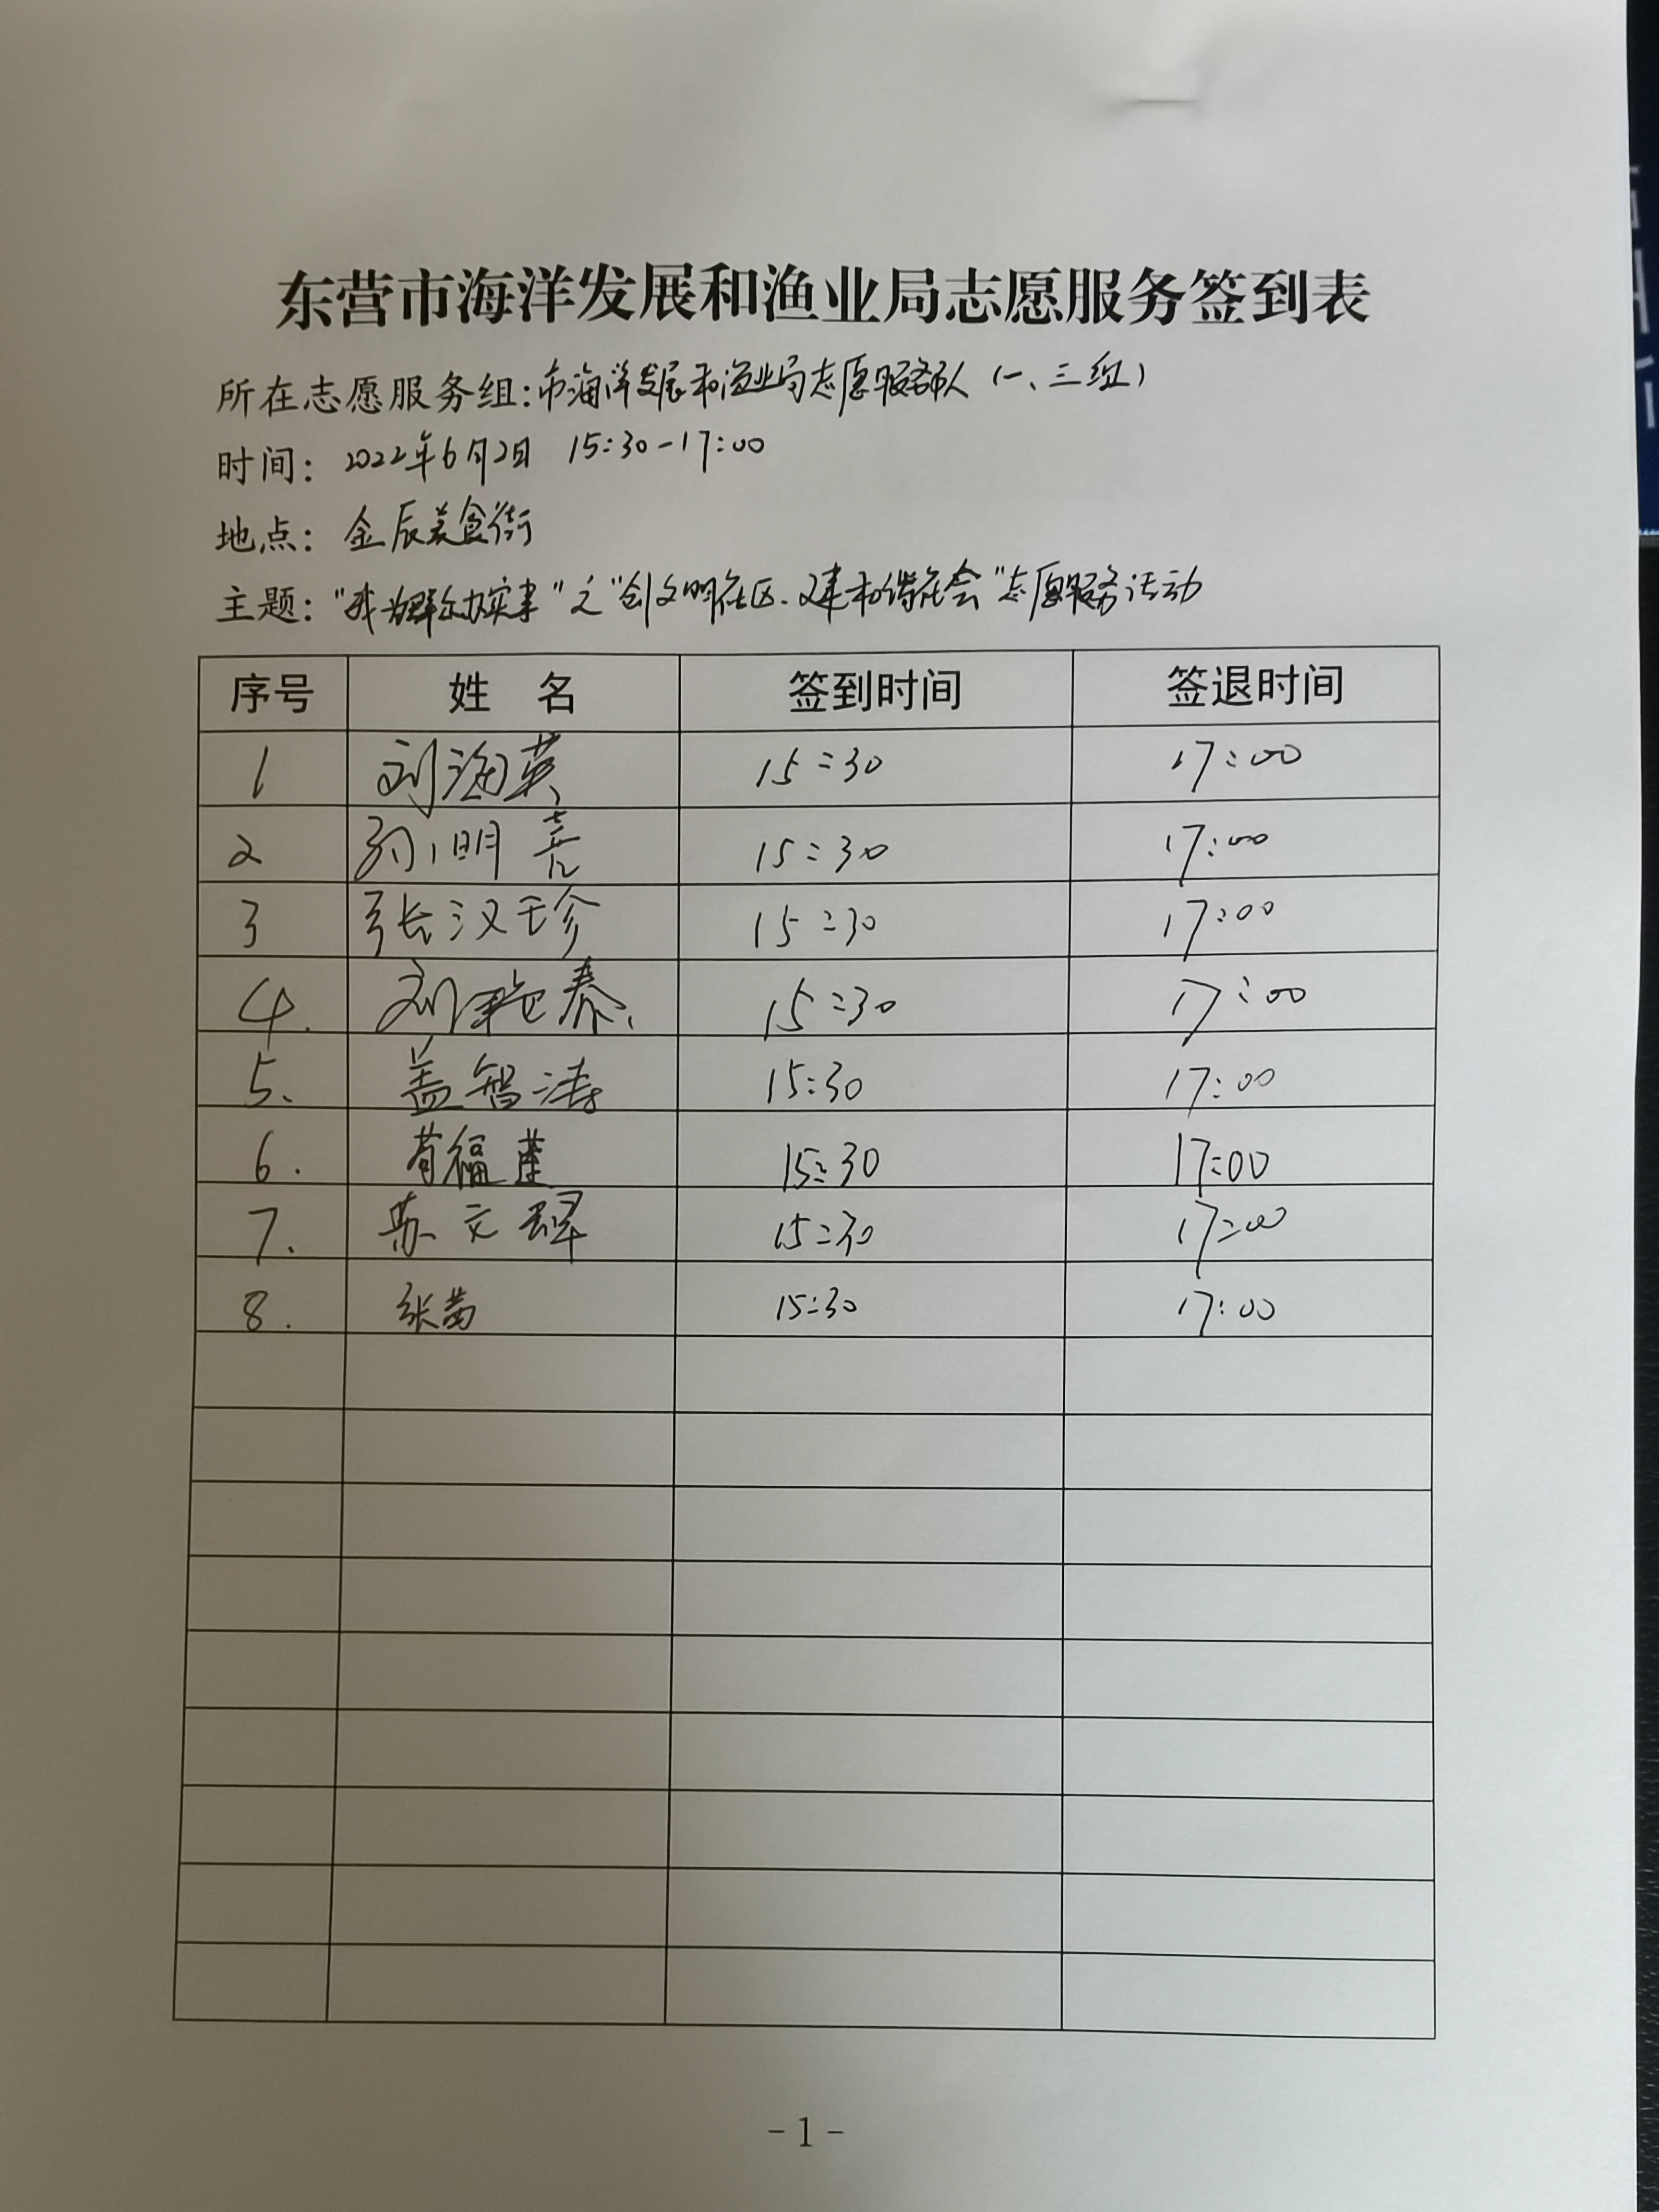 东营市海洋发展和渔业局志愿服务签到表
所在志愿服务组:市海洋发展和渔业局志愿服务队(一、三组)
时间: 2022年6月2日 15:30-17:00
地点: 金辰美食街
主题:"我为群众办实事"之"创文明社区、建和谐社会"志愿服务活动
序号 姓 名 签到时间 签退时间
1 刘海英 15:30 17:00
2 孙明亮 15:30 17:00
3 张汉珍 15:30 17:00
4. 刘艳春 15:30 17:00
5. 盖智涛 15:30 17:00
6. 苟福莲 15:30 17:00
7. 苏文翠 15:30 17:00
8. 张苗 15:30 17:00
- 1 -